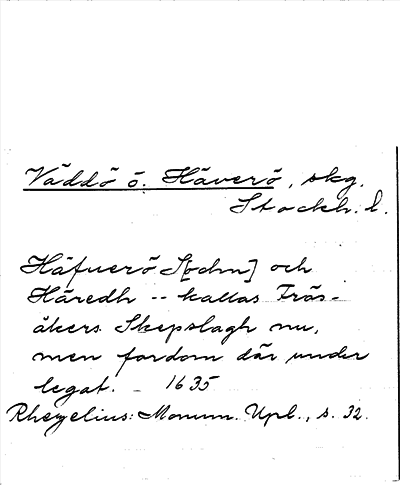 Väddö o. Häverö, skg.
Stockh. l.
Häfuerö S[ochn] och
Häredh -- kallas Frös-
åkers Skepslagh nu,
men fordom där under
legat. – 1635
Rhezelius: Monum. Upl., s. 32.